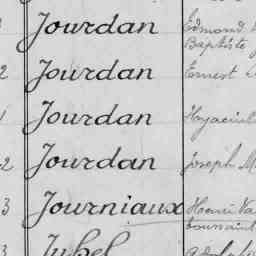 Jourdan Edmond
Baptiste
2 Jourdan Ernest
Jourdan Hyacinth
2 Jourdan Joseph M
3 Journiaux Henri Va
toussaint
3 Juhel